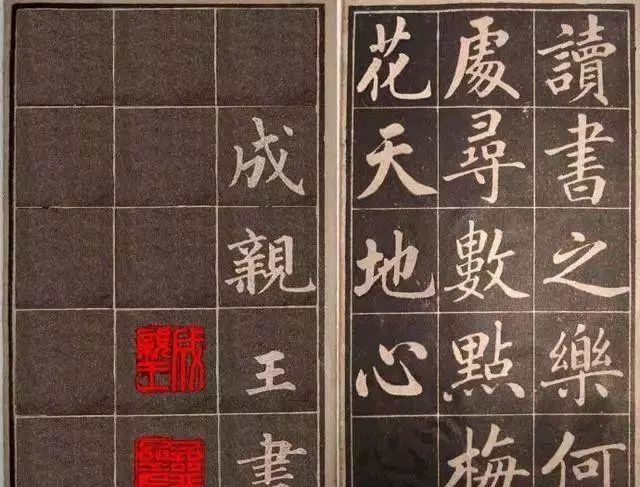 讀書之樂何
處尋數點梅
花天地心
成親王書